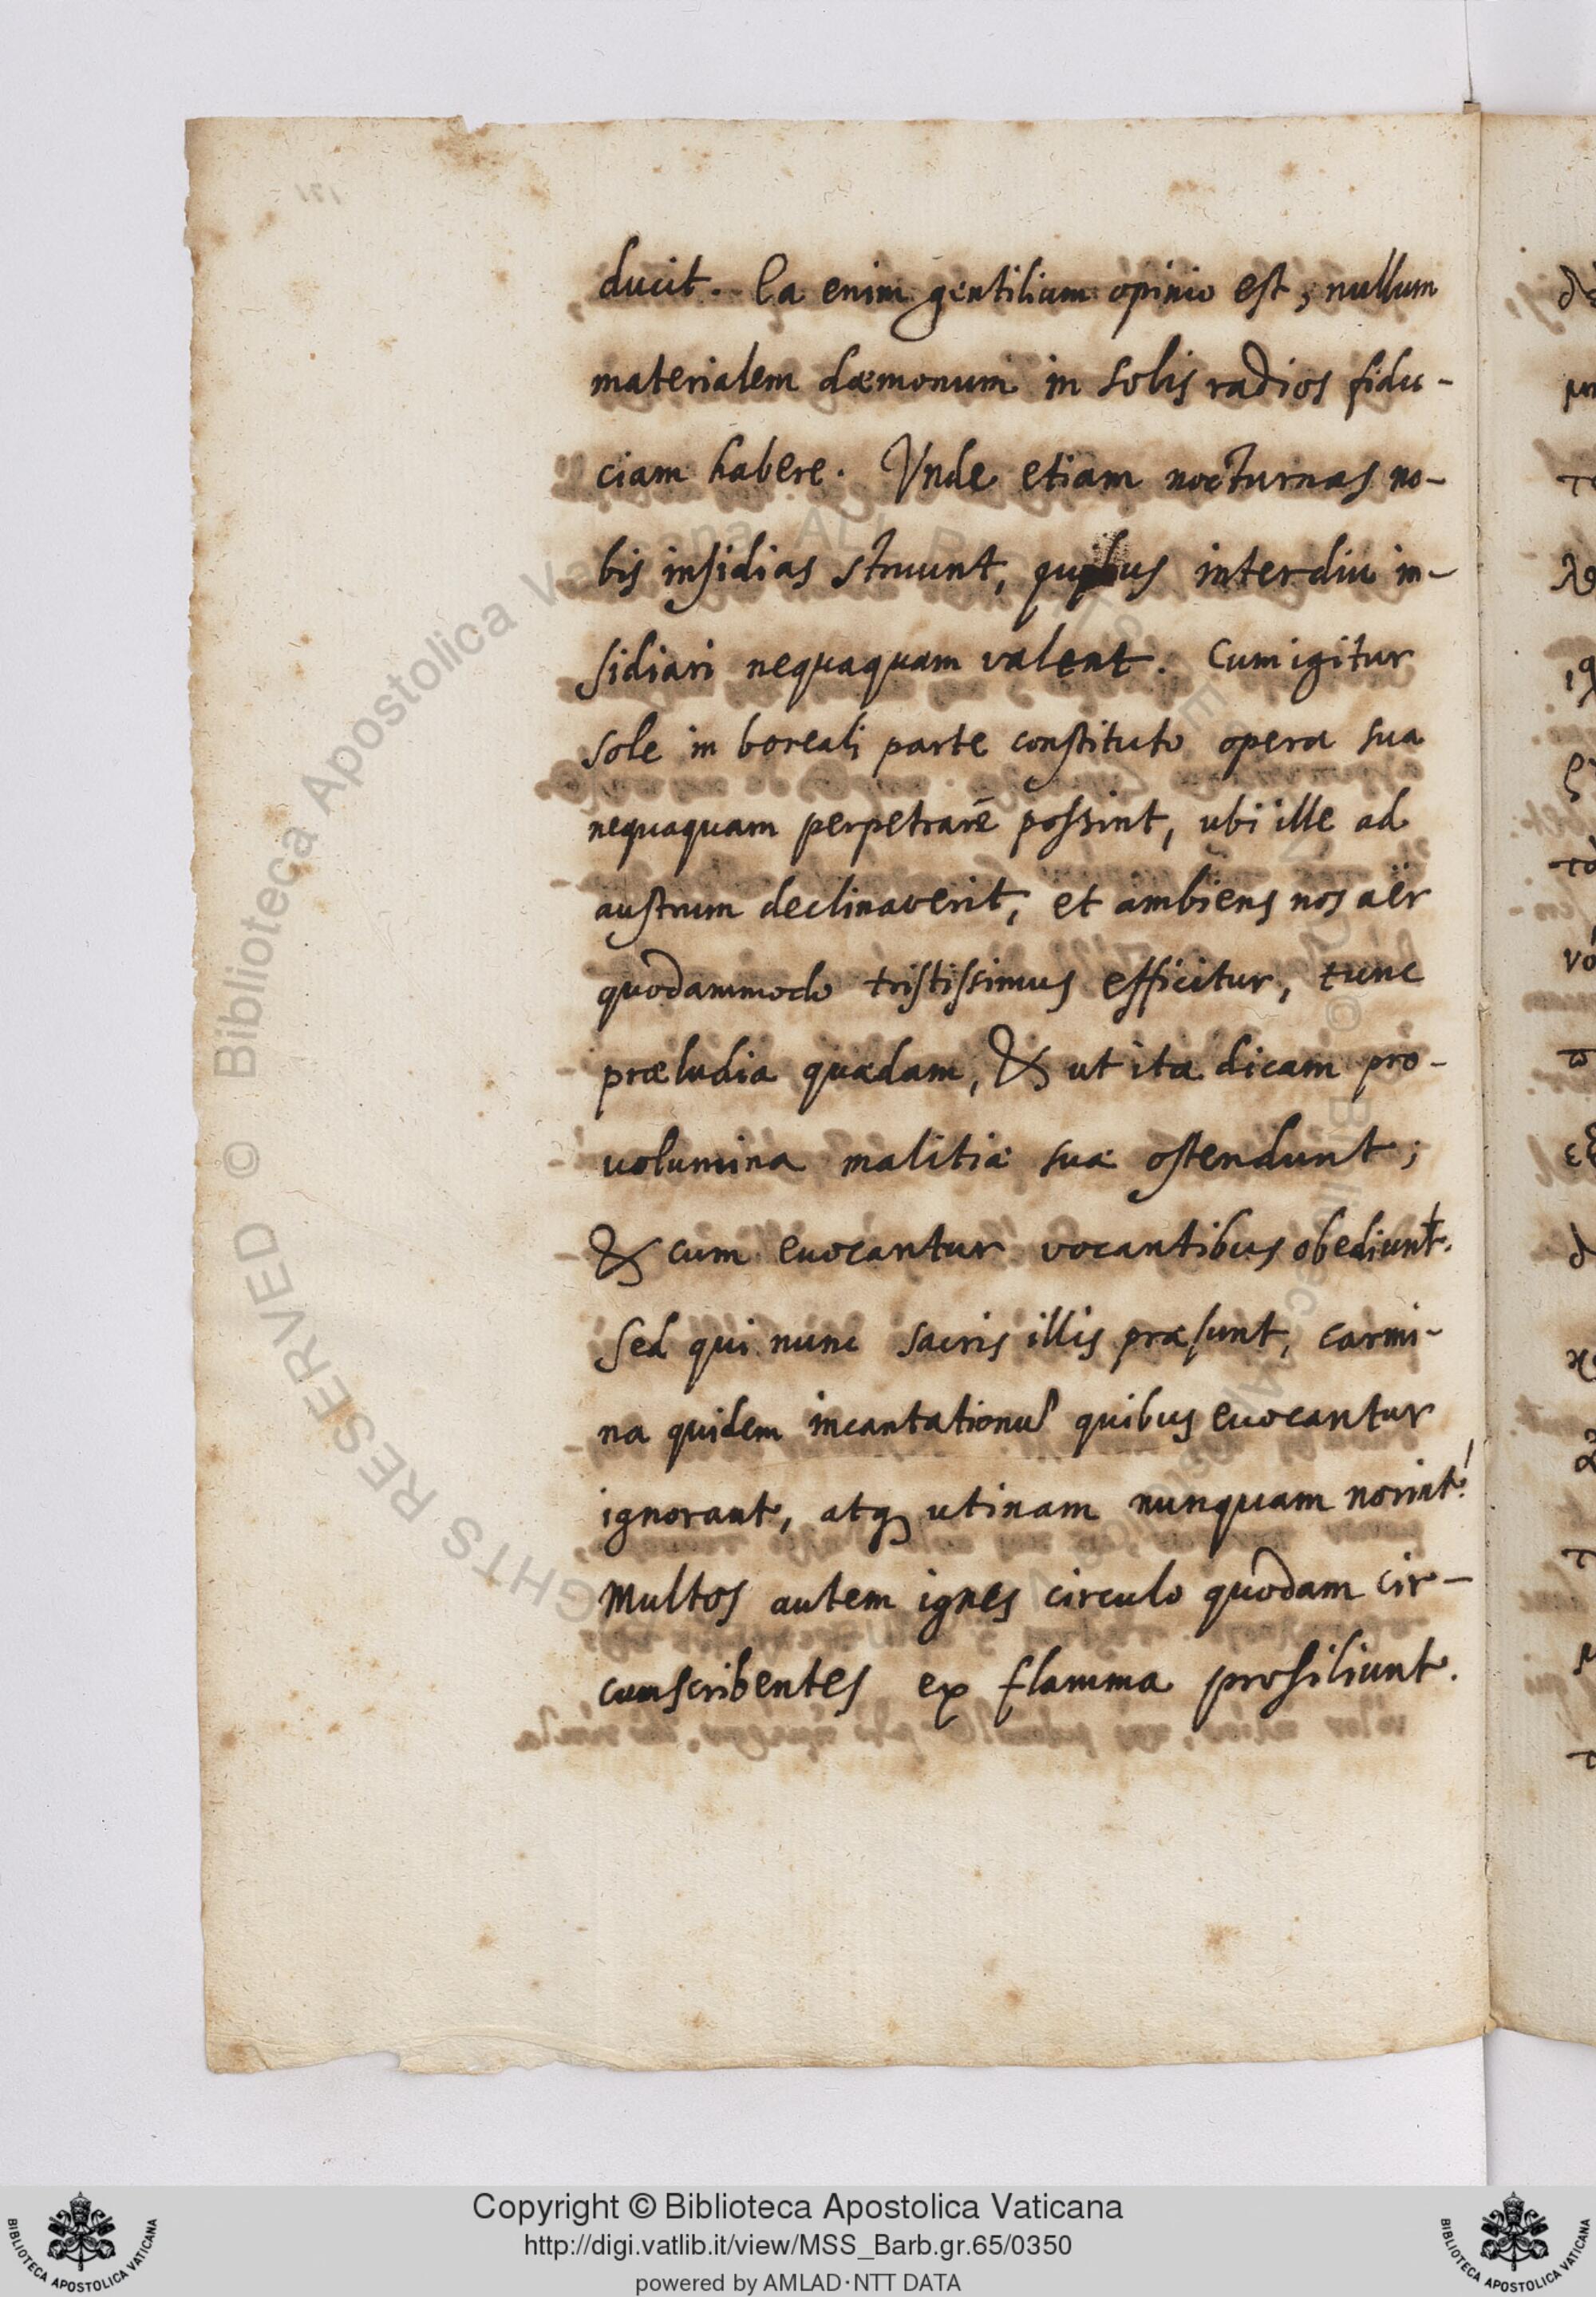 ducit. Ea enim gentilium opinio est, nullum
materialem dæmonum in solis radios fidu-
ciam habere. Vnde etiam nocturnas no-
bis insidias struunt, quibus interdiu in-
sidiari nequaquam valent. Cum igitur
sole in boreali parte constituto opera sua
nequaquam perpetrare possint, ubi ille ad
austrum declinaverit, et ambiens nos aër
quodammodo tristissimus efficitur, tunc
præludia quædam, & ut ita dicam pro-
volumina malitiæ suæ ostendunt;
& cum evocantur vocantibus obediunt.
Sed qui nunc sacris illis præsunt, carmi-
na quidem incantationũ quibus evocantur
ignorant, atq; utinam nunquam norint!
Multos autem ignes circulo quodam cir-
cumscribentes ex flamma prosiliunt.
Copyright © Biblioteca Apostolica Vaticana
http://digi.vatlib.it/view/MSS_Barb.gr.65/0350
powered by AMLAD·NTT DATA
BIBLIOTECA APOSTOLICA VATICANA
BIBLIOTECA APOSTOLICA VATICANA